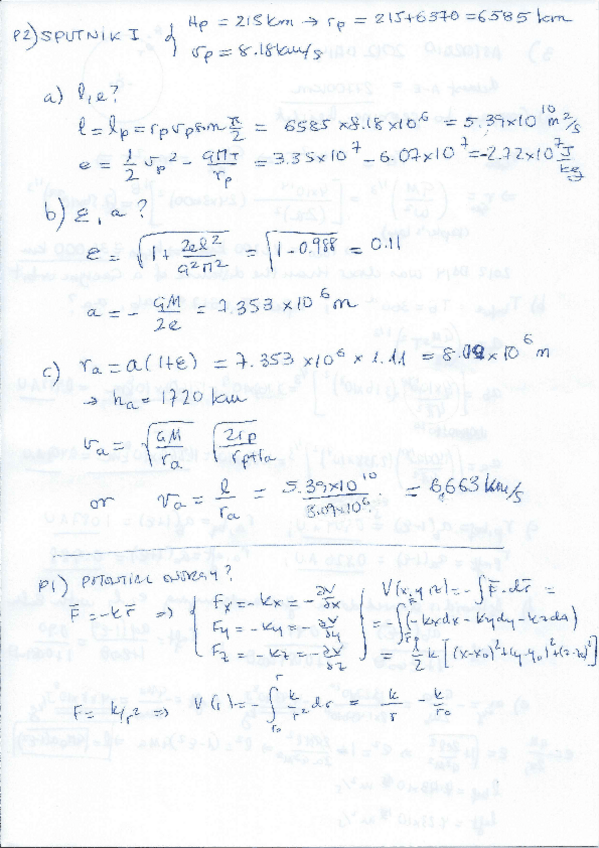 P2) SPUTNIK I { Hp = 215 km → rp = 215+6370 = 6585 km
vp = 8.18 km/s
a) l, e?
l = lp = rp vp sin π/2 = 6585 × 8.18 × 10^6 = 5.39×10^10 m²/s
e = 1/2 vp² - GM/rp = 3.35×10^7 - 6.07×10^7 = -2.72×10^7 J/kg
b) ε, a?
ε = √(1 + 2el²/G²M²) = √(1-0.988) = 0.11
a = - GM/2e = 7.353 × 10^6 m
c) ra = a(1+ε) = 7.353 × 10^6 × 1.11 = 8.09 × 10^6 m
→ ha = 1720 km
va = √(GM/ra) √(2rp/(rp+ra))
or va = l/ra = 5.39×10^10 / 8.09×10^6 = 6,663 km/s
P1) POTENTIAL ENERGY?
F̄ = -k r̄ ⇒ { Fx = -kx = -∂V/∂x
Fy = -ky = -∂V/∂y
Fz = -kz = -∂V/∂z
} V(x,y,z) = -∫ F̄·dr̄ =
= -∫(-kxdx - kydy - kzdz)
= 1/2 k [(x-x0)²+(y-y0)²+(z-z0)²]
F = k/r² ⇒ V(r) = -∫ k/r² dr = k/r - k/r0